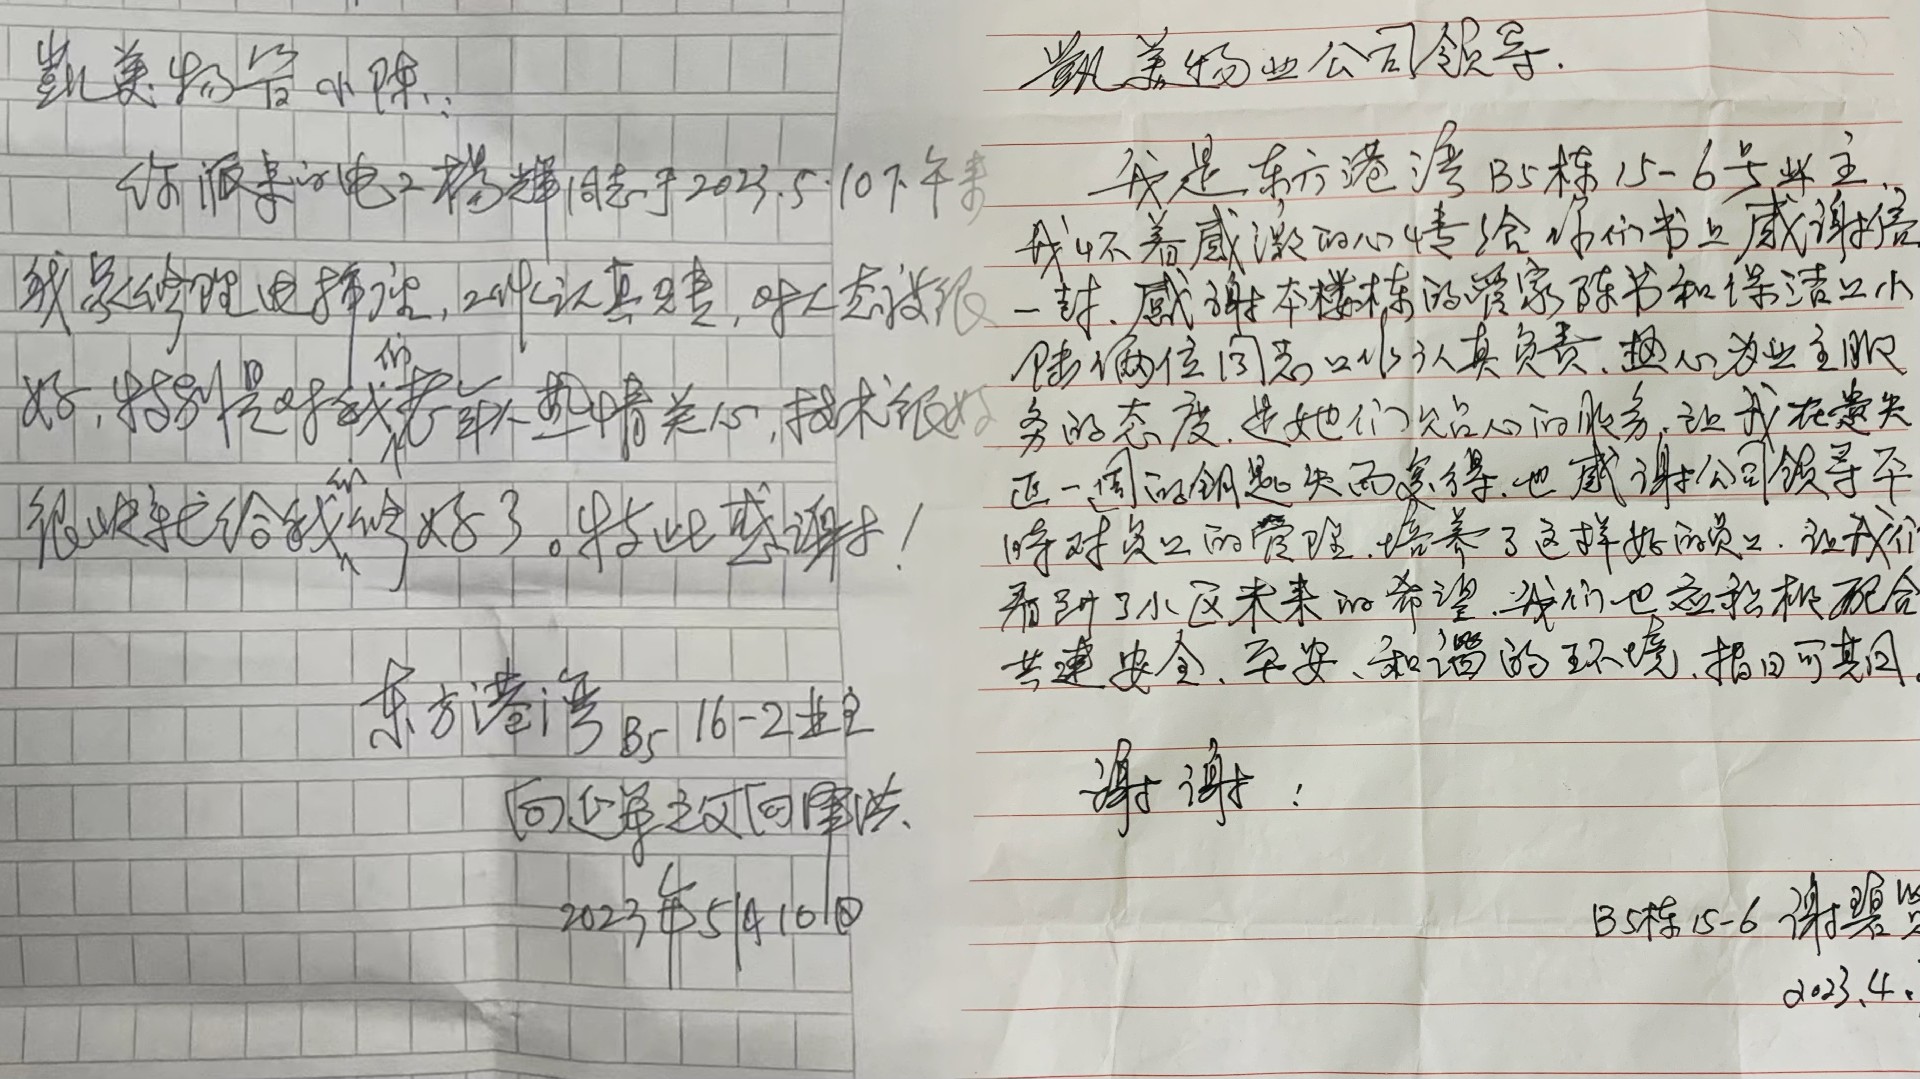 凯美物管小陈:
你派来的电工杨辉同志于2023.5.10下午来
我家修理电插座,工作认真负责,对人态度很
好,特别是对我们老年人热情关心,技术很好
很快就给我们修好了。特此感谢!
东方港湾B5 16-2业主
2023年5月10日
凯美物业公司领导.
我是东方港湾B5栋15-6号业主.
我怀着感激的心情给你们书上感谢信
一封、感谢本楼栋的管家陈书和保洁工小
陆俩位同志工作认真负责、热心为业主服
务的态度.是她们 心的服务,让我在遗失
近一周的钥匙失而复得.也感谢公司领导平
时对员工的管理.培养了这样好的员工.让我们
看到了小区未来的希望.我们也应积极配合
共建安全、平安、和谐的环境、指日可其因。
谢谢:
B5栋15-6 谢碧
2023.4.